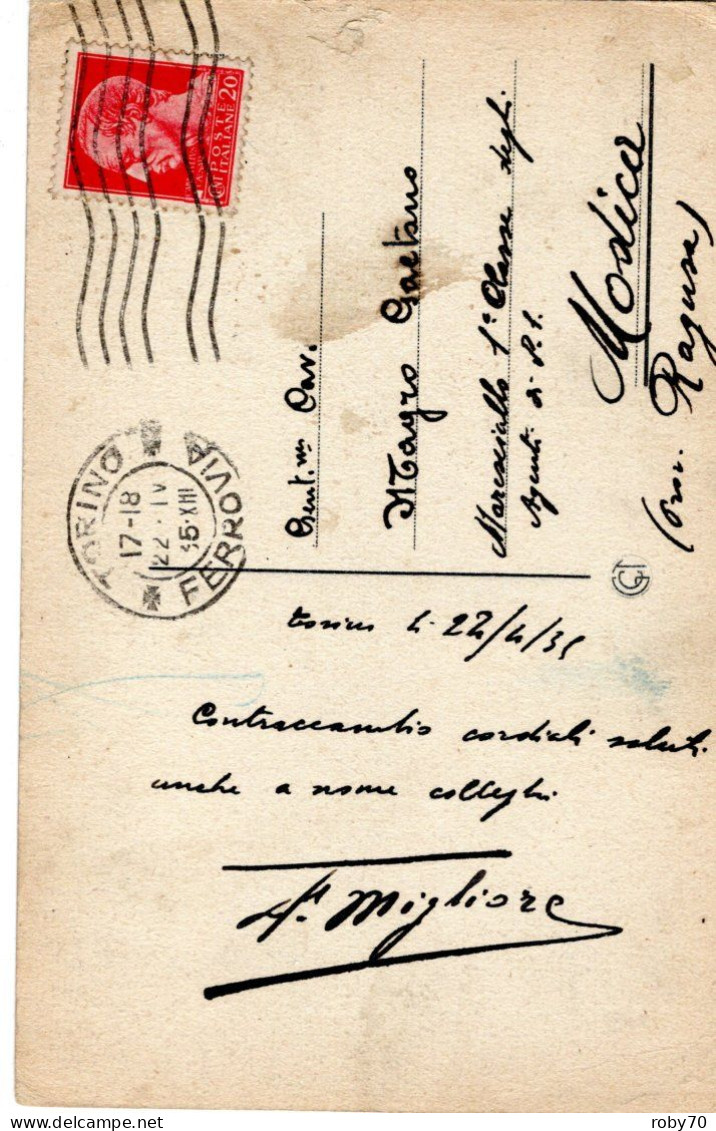 POSTE
ITALIANE
20
TORINO
17-18
22 · IV
35·XIII
FERROVIA
Gent.mo Cav.
Magro Gaetano
Maresciallo 1ª Classe degli
Agenti di P.S.
Modica
(Prov. Ragusa)
CGI
Torino li 22/4/35
Contraccambio cordiali saluti
anche a nome colleghi
Migliore
roby70